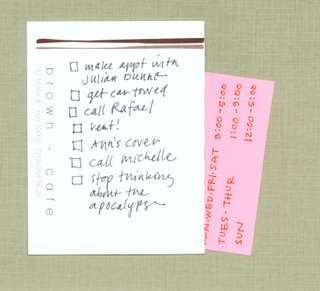 make appt with
Julian Dunne
get car towed
call Rafael
rent!
Ann's cover
call Michelle
stop thinking
about the
apocalypse
brown - cafe
MON·WED·FRI·SAT 9:00-5:00
TUES·THUR 1:00-9:00
SUN 12:00-5:00